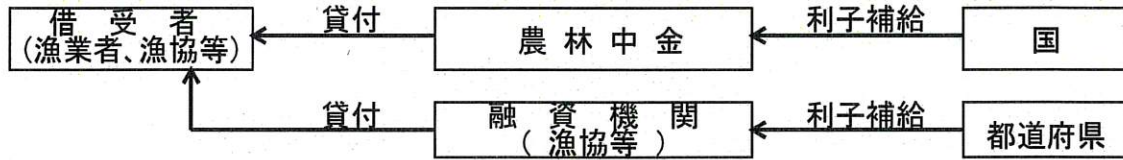 借受者
(漁業者、漁協等)
貸付
農林中金
利子補給
国
貸付
融資機関
(漁協等)
利子補給
都道府県